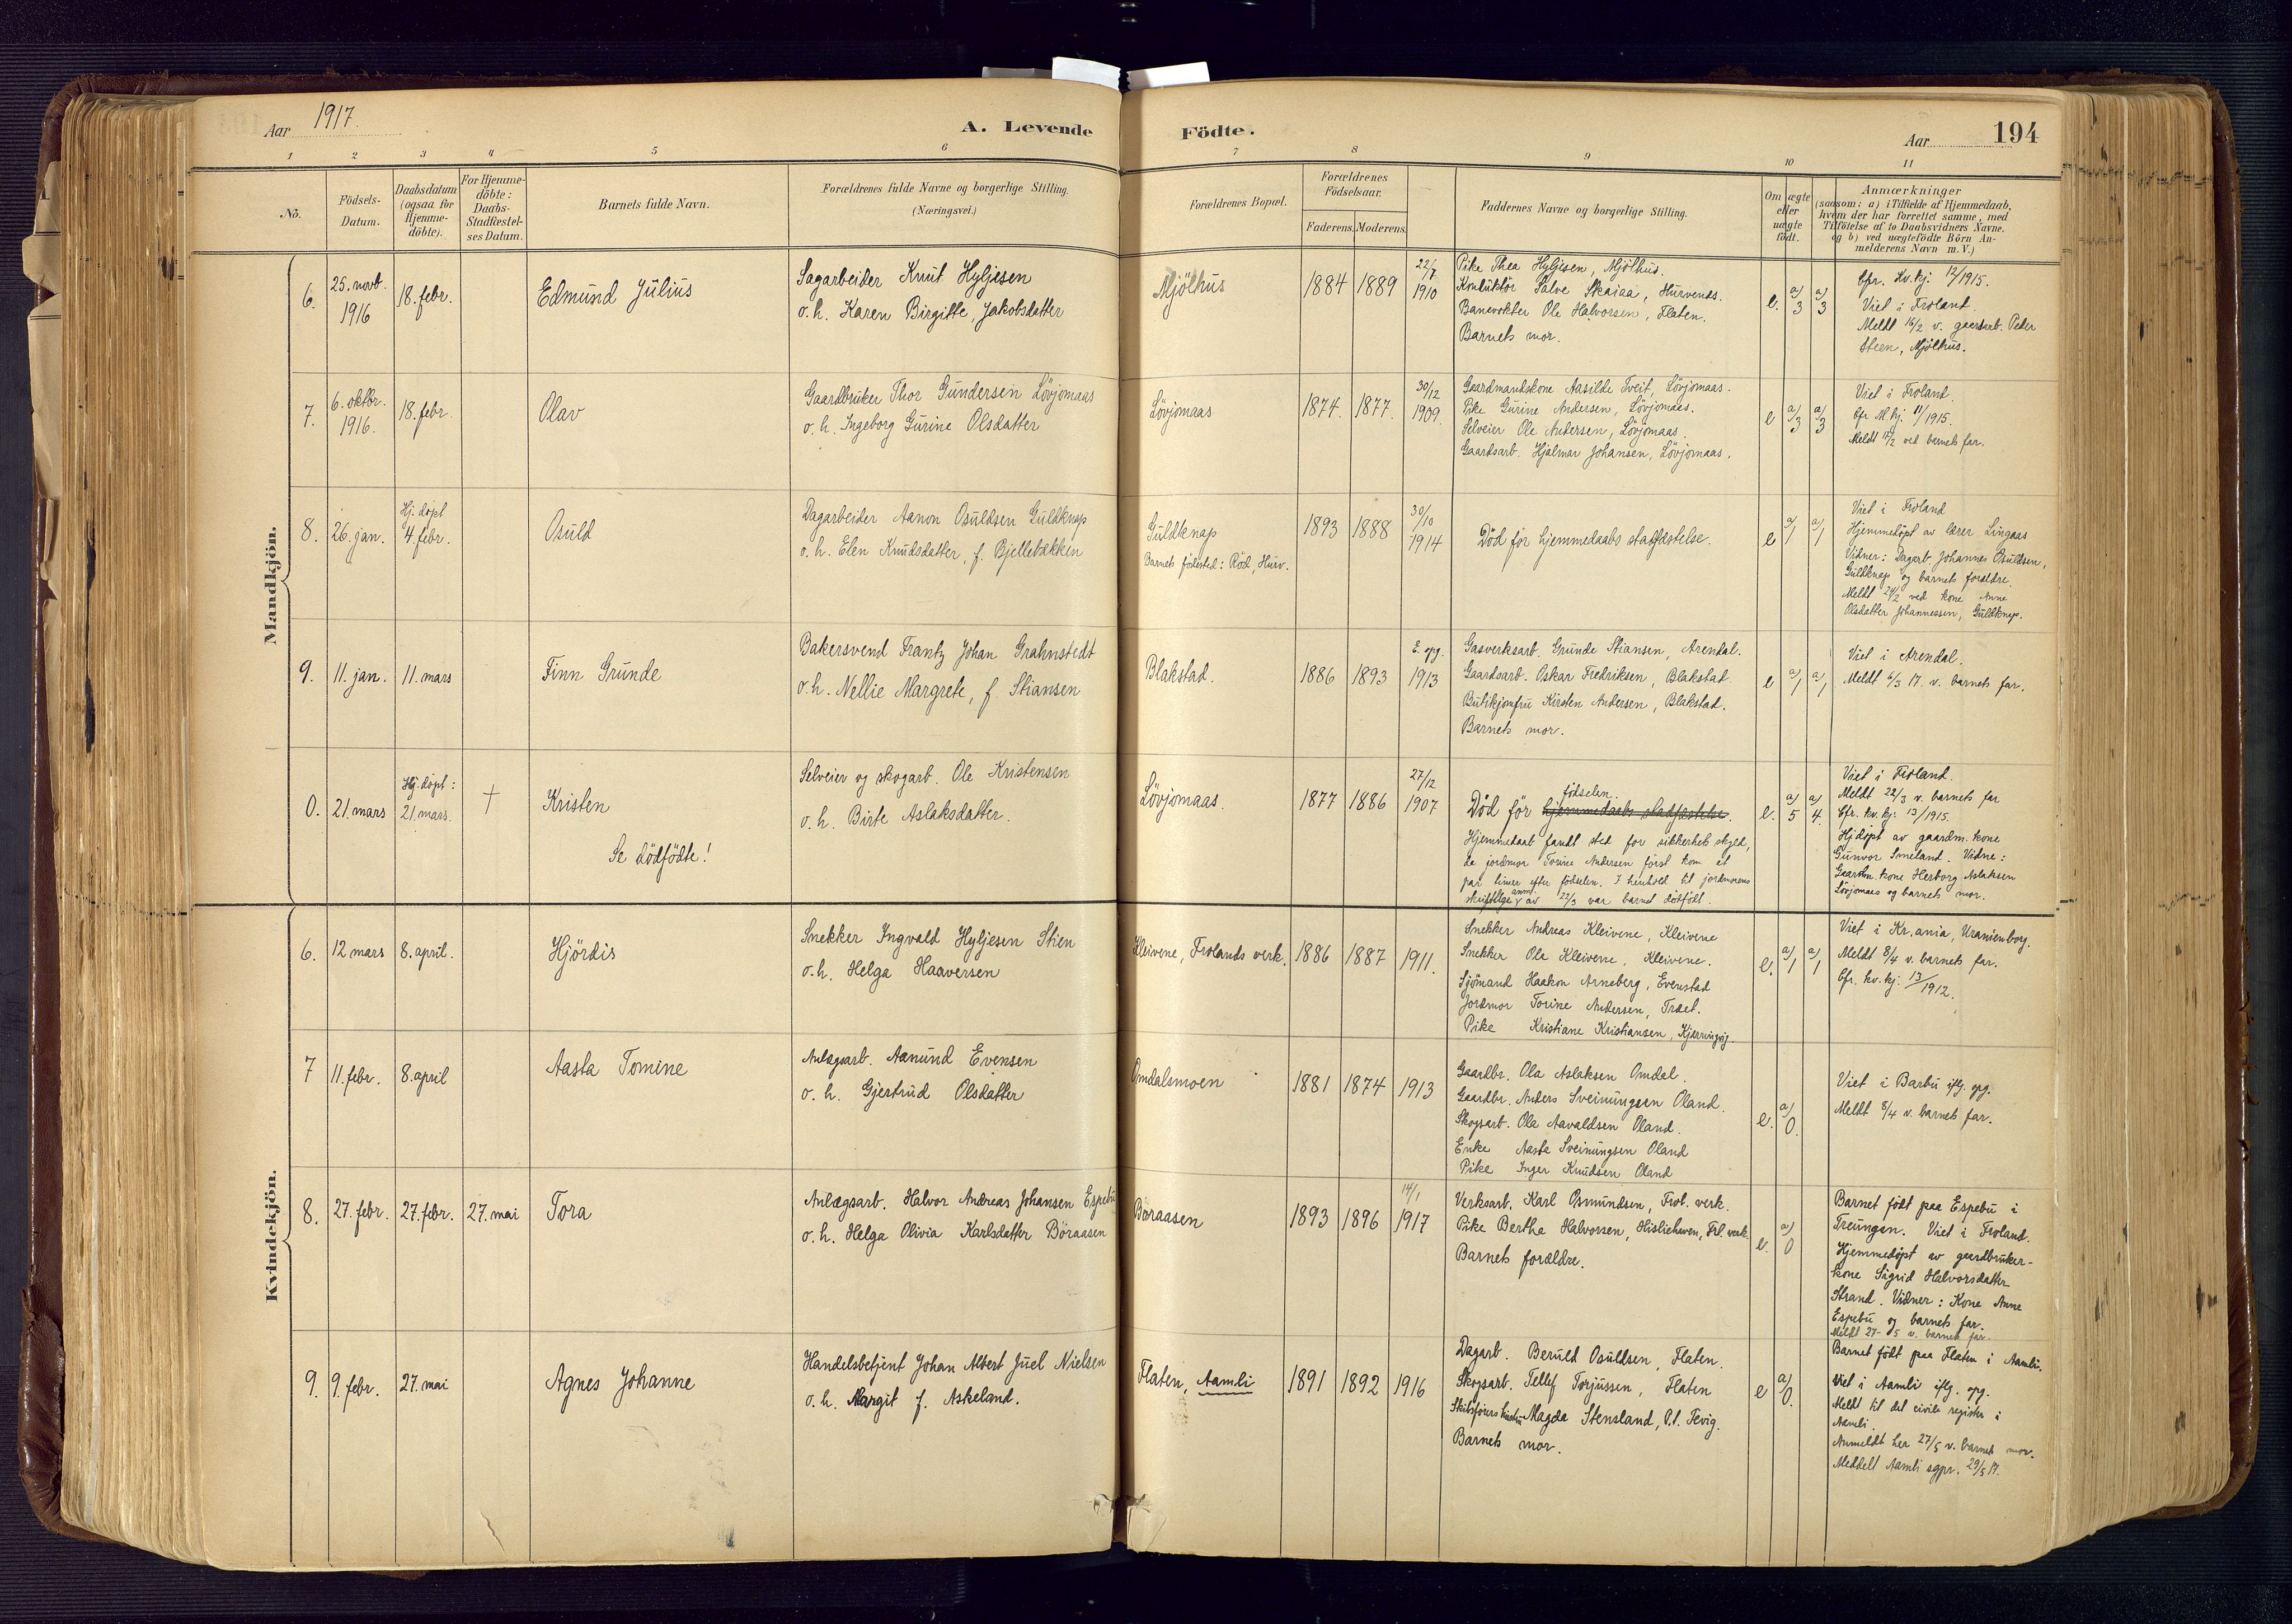 Aar 1917.
A. Levende Födte.
Aar 194
1 2 3 4 5 6 7 8 9 10 11
No.
Födsels-Datum.
Daabsdatum (ogsaa for Hjemme-döbte).
For Hjemme-döbte: Daabs-Stadfæstel-ses Datum.
Barnets fulde Navn.
Forældrenes fulde Navne og borgerlige Stilling.
(Næringsvei.)
Forældrenes Bopæl.
Forældrenes Födselsaar.
Faderens. Moderens.
Faddernes Navne og borgerlige Stilling.
Om ægte eller uægte födt.
Anmærkninger
(saasom: a) i Tilfælde af Hjemmedaab,
hvem der har forrettet samme, med
Tilföielse af to Daabsvidners Navne.
og b) ved uægtefödte Börn An-
melderens Navn m. V.)
Mandkjön.
6. 25. novb. 1916 18. febr. Edmund Julius
Sagarbeider Knut Hyljesen
o. h. Karen Birgitte, Jakobsdatter
Mjölhus 1884 1889 22/7 1910
Pike Thea Hyljesen, Mjölhus.
Konduktör Salve Skajaa, Hurvends.
Banevokter Ole Halvorsen, Flaten.
Barnets mor.
e. a/3 a/3
Cfr. Kv. kj. 12/1915.
Viet i Froland.
Meldt 16/2 v. gaardarb. Peder
Steen, Mjölhus.
7. 6. oktbr. 1916. 18. febr. Olav
Gaardbruker Thor Gundersen Lövjomaas
o. h. Ingeborg Gurine Olsdatter
Lövjomaas 1874. 1877. 30/12 1909.
Gaardmandskone Aasilde Tveit, Lövjomaas.
Pike Gurine Andersen, Lövjomaas.
Selveier Ole Andersen, Lövjomaas.
Gaardsarb. Hjalmar Johansen, Lövjomaas.
e a/3 a/3
Viet i Froland.
Cfr M. kj. 11/1915.
Meldt 17/2 ved barnets far.
8. 26. jan. Hj. döpt 4 febr. Osuld
Dagarbeider Aanon Osuldsen Guldknap
o. h. Elen Knudsdatter, f. Bjellebækken
Guldknap
Barnets födested: Röd, Hurv.
1893 1888 30/10 1914
Död för hjemmedaabs stadfæstelse.
e a/1 a/1
Viet i Froland
Hjemmedöpt av lærer Lingaas
Vidner: Dagarb. Johannes Osuldsen,
Guldknap og barnets forældre.
Meldt 24/2 ved kone Anne
Olsdatter Johannessen, Guldknap.
9. 11. jan. 11. mars Finn Grunde
Bakersvend Frantz Johan Grahnstedt
o. h. Nellie Margrete, f. Stiansen
Blakstad. 1886 1893 E. opg. 1913
Gasverksarb. Grunde Stiansen, Arendal.
Gaardsarb. Oskar Fredriksen, Blakstad
Butikjomfru Kirsten Andersen, Blakstad.
Barnets mor.
e a/1 a/1
Viet i Arendal.
Meldt 6/3 17. v. barnets far.
0. 21. mars Hj. döpt: 21. mars. † Kristen
Se dödfödte!
Selveier og skogarb. Ole Kristensen
o. h. Birte Aslaksdatter.
Lövjomaas. 1877 1886 27/12 1907
födselen.
Död för hjemmedaabs stadfæstelse.
Hjemmedaab fandt sted for sikkerhets skyld,
da jordmor Torine Andersen först kom et
par timer efter födselen. I henhold til jordmorens
skriftlige anm. av 22/3 var barnet dödfödt.
e. a/5 a/4.
Viet i Froland.
Meldt 22/3 v. barnets far
Cfr. kv. kj: 13/1915.
Hjdöpt av gaardm. kone
Gunvor Smeland. Vidne:
Gaardm. kone Herborg Aslaksen
Lövjomaas og barnets mor.
Kvindekjön.
6. 12 mars 8. april. Hjördis
Snekker Ingvald Hyljesen Stien
o. h. Helga Haaversen
Kleivene, Frolands verk. 1886 1887 1911.
Snekker Andreas Kleivene, Kleivene
Snekker Ole Kleivene, Kleivene.
Sjömand Haakon Arneberg, Evenstad
Jordmor Torine Andersen, Træet.
Pike Kristiane Kristiansen, Kjerringvig.
e. a/1 a/1
Viet i Kr.ania, Uranienborg.
Meldt 8/4 v. barnets far.
Cfr. kv. kj. 13/1912.
7 11. febr. 8. april Aasta Tomine
Anlægsarb. Aanund Evensen
o. h. Gjertrud Olsdatter
Omdalsmoen 1881 1874 1913
Gaardbr. Ola Aslaksen Omdal.
Gaardbr. Anders Sveinungsen Öland.
Skogsarb. Ola Aavaldsen Öland.
Enke Aaste Sveinungsen Öland
Pike Inger Knudsen Öland
e. a/0.
Viet i Barbu iflg. opg.
Meldt 8/4 v. barnets far.
8. 27. febr. 27. febr. 27. mai Tora
Anlægsarb. Halvor Andreas Johansen Espebu
o. h. Helga Olivia Karlsdatter Böraasen
Böraasen 1893 1896 14/1 1917
Verksarb. Karl Osmundsen, Frol. verk.
Pike Bertha Halvorsen, Hisliehaven, Frl. verk.
Barnets forældre.
e. a/0
Barnet födt paa Espebu i
Treungen. Viet i Froland.
Hjemmedöpt av gaardbruker-
kone Sigrid Halvorsdatter
Strand. Vidner: Kone Anne
Espebu og barnets far.
Meldt 27-5 v. barnets far.
9. 9. febr. 27. mai Agnes Johanne
Handelsbetjent Johan Albert Juel Nielsen
o. h. Margit f. Askeland.
Flaten, Aamli 1891 1892 1916
Dagarb. Beruld Osuldsen, Flaten.
Skogsarb. Tellef Torjussen, Flaten
Skibsförers hustru Magda Stensland, P.t. Tevig.
Barnets mor.
e a/0.
Barnet födt paa Flaten i Aamli.
Viet i Aamli iflg. opg.
Meldt til det civile register i
Aamli.
Anmeldt her 27/5 v. barnets mor.
Meddelt Aamli sgpr. 29/5 17.